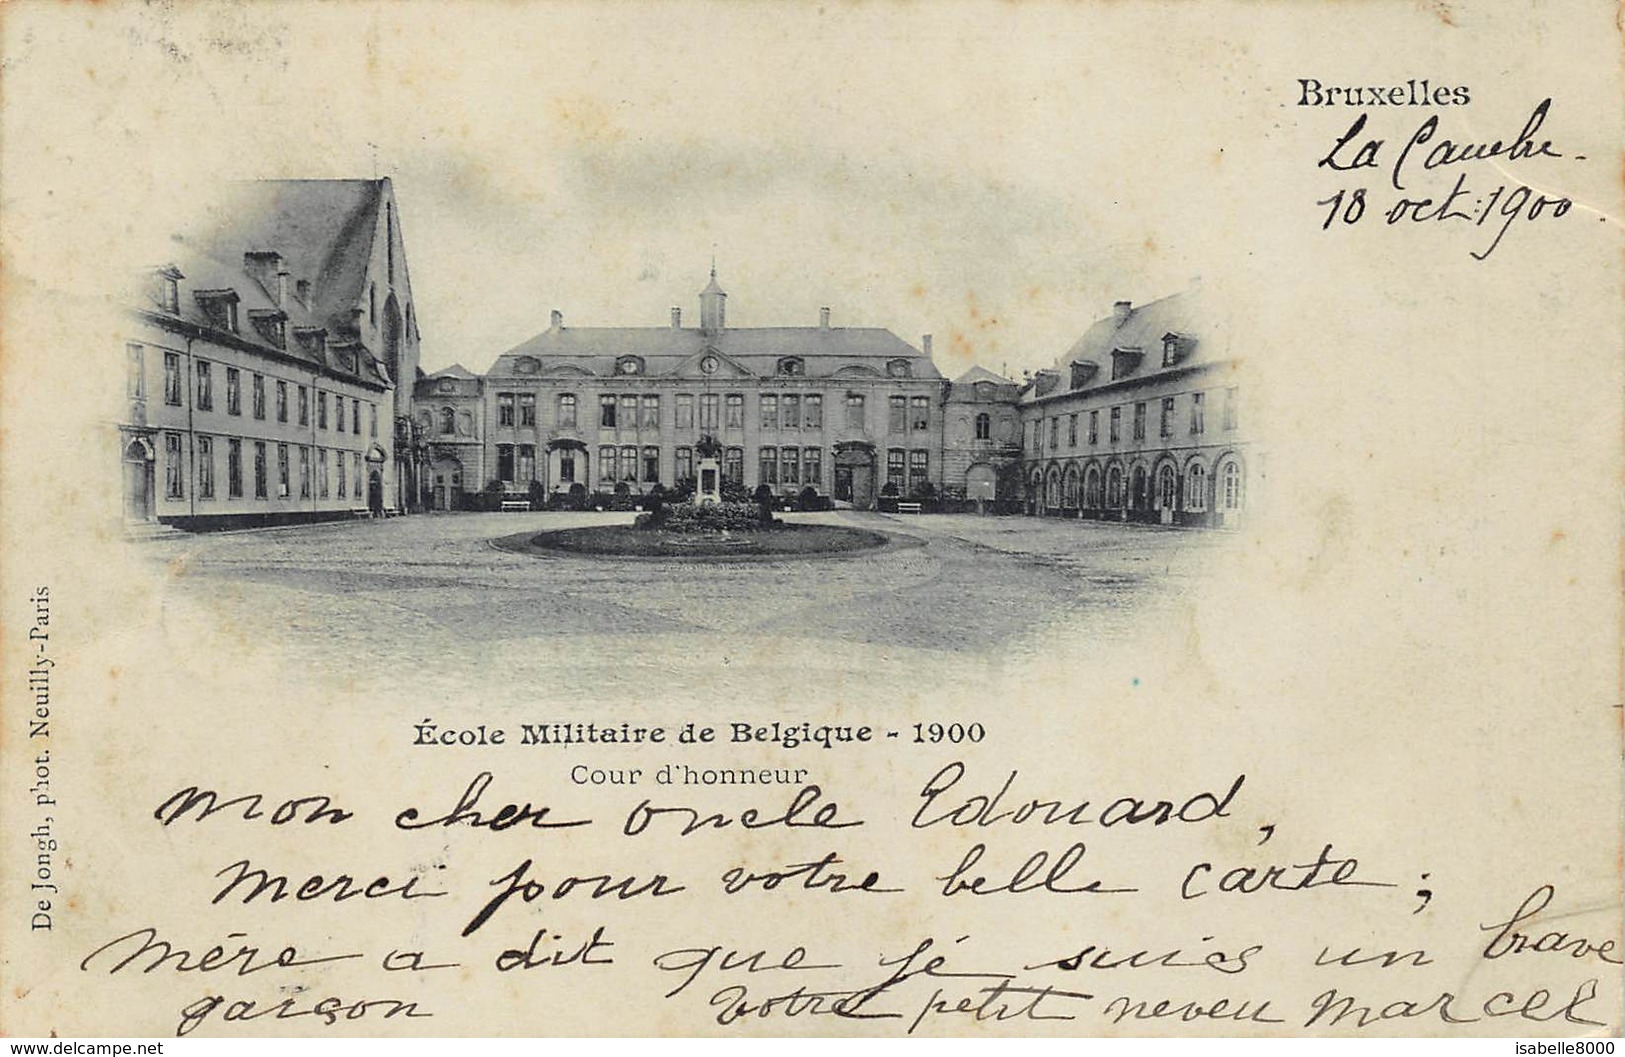 Bruxelles
La Cambre.
18 oct: 1900.
De Jongh, phot. Neuilly-Paris
École Militaire de Belgique - 1900
Cour d'honneur
mon cher oncle Edouard,
Merci pour votre belle carte;
mère a dit que je suis un brave
garçon votre petit neveu Marcel
www.delcampe.net
isabelle8000